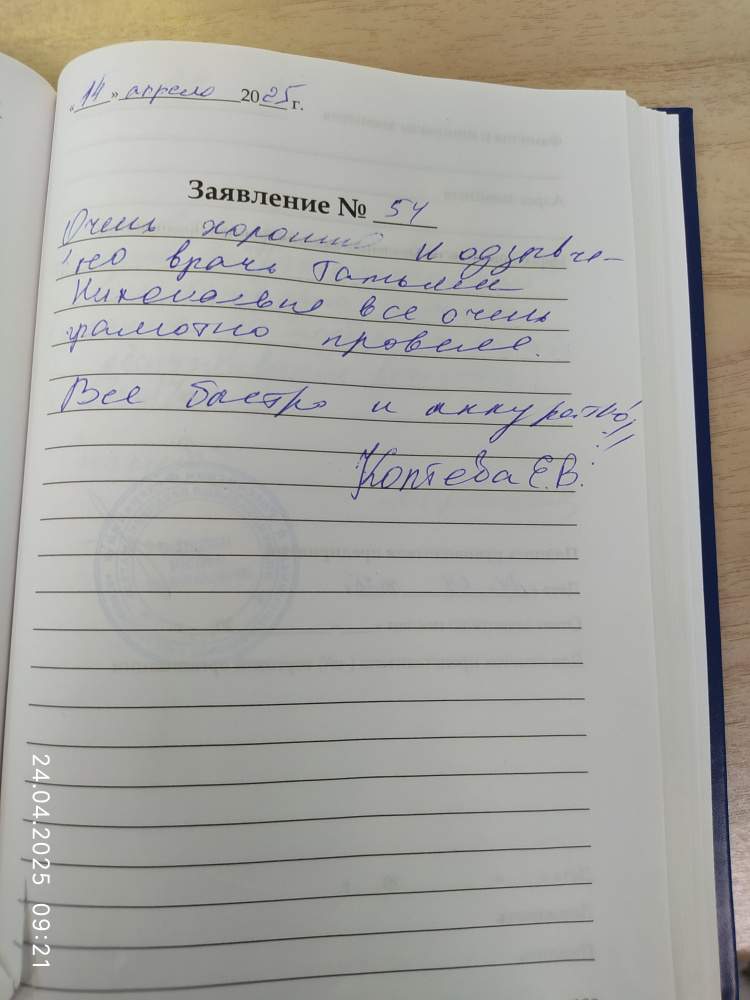 «14» апреля 2025 г.
Заявление № 54
Очень хорошо и отзывчи-
во врачь Татьяна
Николаевна все очень
грамотно провела.
Все быстро и аккуратно!!!
Коптева Е.В.
24.04.2025 09:21